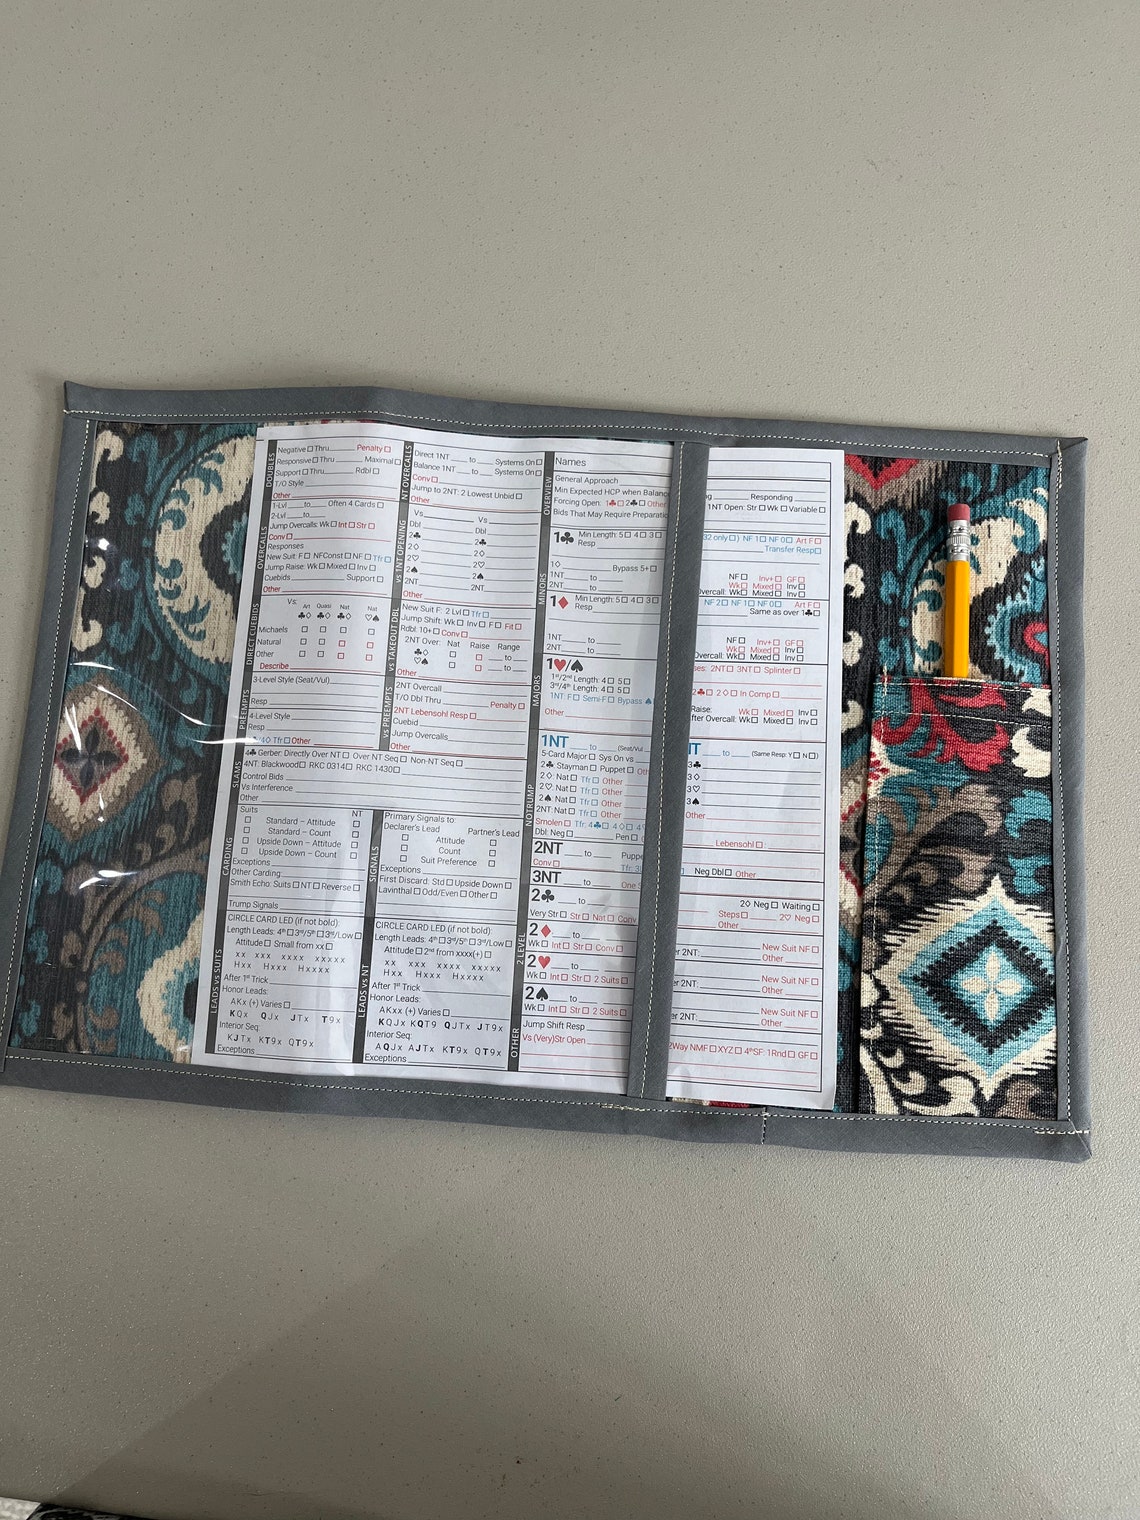 DOUBLES
Negative □ Thru____ Penalty □
Responsive □ Thru____ Maximal □
Support □ Thru____ Rdbl □
T/O Style
Other
OVERCALLS
1-Lvl ____to____ Often 4 Cards □
2-Lvl ____to____
Jump Overcalls: Wk □ Int □ Str □
Conv □
Responses
New Suit F □ NFConst □ NF □ Tfr □
Jump Raise: Wk □ Mixed □ Inv □
Cuebids ____ Support □
Other
DIRECT CUEBIDS
Vs: Art Quasi Nat Nat
♣♢ ♣♢ ♣♢ ♡♠
Michaels □ □ □ □
Natural □ □ □ □
Other □ □ □ □
Describe
PREEMPTS
3-Level Style (Seat/Vul)
Resp
4-Level Style
Resp
Tfr □ Other
SLAMS
4♣ Gerber: Directly Over NT □ Over NT Seq □ Non-NT Seq □
4NT: Blackwood □ RKC 0314 □ RKC 1430 □
Control Bids
Vs Interference
Other
CARDING
Suits NT
□ Standard – Attitude □
□ Standard – Count □
□ Upside Down – Attitude □
□ Upside Down – Count □
Exceptions
Other Carding
Smith Echo: Suits □ NT □ Reverse □
Trump Signals
SIGNALS
Primary Signals to:
Declarer's Lead Partner's Lead
□ Attitude □
□ Count □
□ Suit Preference □
Exceptions
First Discard: Std □ Upside Down □
Lavinthal □ Odd/Even □ Other □
LEADS vs SUITS
CIRCLE CARD LED (if not bold):
Length Leads: 4th □ 3rd/5th □ 3rd/Low □
Attitude □ Small from xx □
xx xxx xxxx xxxxx
Hxx Hxxx Hxxxx
After 1st Trick
Honor Leads:
AKx (+) Varies □
KQx QJx JTx T9x
Interior Seq:
KJTx KT9x QT9x
Exceptions
LEADS vs NT
CIRCLE CARD LED (if not bold):
Length Leads: 4th □ 3rd/5th □ 3rd/Low □
Attitude □ 2nd from xxxx(+) □
xx xxx xxxx xxxxx
Hxx Hxxx Hxxxx
After 1st Trick
Honor Leads:
AKxx (+) Varies □
KQJx KQT9 QJTx JT9x
Interior Seq:
AQJx AJTx KT9x QT9x
Exceptions
NT OVERCALLS
Direct 1NT ____ to ____ Systems On □
Balance 1NT ____ to ____ Systems On □
Conv □
Jump to 2NT: 2 Lowest Unbid □
Other
vs 1NT OPENING
Vs____ Vs____
Dbl Dbl
2♣ 2♣
2♢ 2♢
2♡ 2♡
2♠ 2♠
2NT 2NT
Other
vs TAKEOUT DBL
New Suit F: 2 Lvl □ Tfr □
Jump Shift: Wk □ Inv □ F □ Fit □
Rdbl: 10+ □ Conv □
2NT Over: Nat Raise Range
♣♢ □ □ ____ to ____
♡♠ □ □ ____ to ____
Other
vs PREEMPTS
2NT Overcall
T/O Dbl Thru Penalty □
2NT Lebensohl Resp □
Cuebid
Jump Overcalls
Other
Names
OVERVIEW
General Approach
Min Expected HCP when Balance
Forcing Open: 1♣ □ 2♣ □ Other
Bids That May Require Preparatio
MINORS
1♣ Min Length: 5 □ 4 □ 3 □
Resp
1♢ ____ Bypass 5+ □
1NT ____ to ____
2NT ____ to ____
1♦ Min Length: 5 □ 4 □ 3 □
Resp
1NT ____ to ____
2NT ____ to ____
MAJORS
1♥/♠
1st/2nd Length: 4 □ 5 □
3rd/4th Length: 4 □ 5 □
1NT F □ Semi-F □ Bypass ♠
Other
NOTRUMP
1NT ____ to ____ (Seat/Vul
5-Card Major □ Sys On vs
2♣ Stayman □ Puppet □ Oth
2♢: Nat □ Tfr □ Other
2♡: Nat □ Tfr □ Other
2♠: Nat □ Tfr □ Other
2NT: Nat □ Tfr □ Other
Smolen □ Tfr: 4♣ □ 4♢ □ 4
Dbl: Neg □ Pen □
2NT ____ to ____ Puppe
Conv □ Tfr: 3
3NT ____ to ____ One
2 LEVEL
2♣ ____ to ____
Very Str □ Str □ Nat □ Conv
2♦ ____ to ____
Wk □ Int □ Str □ Conv □
2♥ ____ to ____
Wk □ Int □ Str □ 2 Suits □
2♠ ____ to ____
Wk □ Int □ Str □ 2 Suits □
OTHER
Jump Shift Resp
Vs (Very)Str Open
ng ____ Responding ____
1NT Open: Str □ Wk □ Variable □
32 only □) NF 1 □ NF 0 □ Art F □
Transfer Resp □
NF □ Inv+ □ GF □
Wk □ Mixed □ Inv □
Overcall: Wk □ Mixed □ Inv □
NF 2 □ NF 1 □ NF 0 □ Art F □
Same as over 1♣ □
NF □ Inv+ □ GF □
Wk □ Mixed □ Inv □
Overcall: Wk □ Mixed □ Inv □
es: 2NT □ 3NT □ Splinter □
2♣ □ 2♢ □ In Comp □
Raise: Wk □ Mixed □ Inv □
fter Overcall: Wk □ Mixed □ Inv □
NT ____ to ____ (Same Resp: Y □ N □)
3♣
3♢
3♡
3♠
Lebensohl □
Neg Dbl □ Other
2♢ Neg □ Waiting □
Steps □ 2♡ Neg □
Other
New Suit NF □
er 2NT: Other
New Suit NF □
er 2NT: Other
New Suit NF □
er 2NT: Other
2Way NMF □ XYZ □ 4th SF: 1Rnd □ GF □